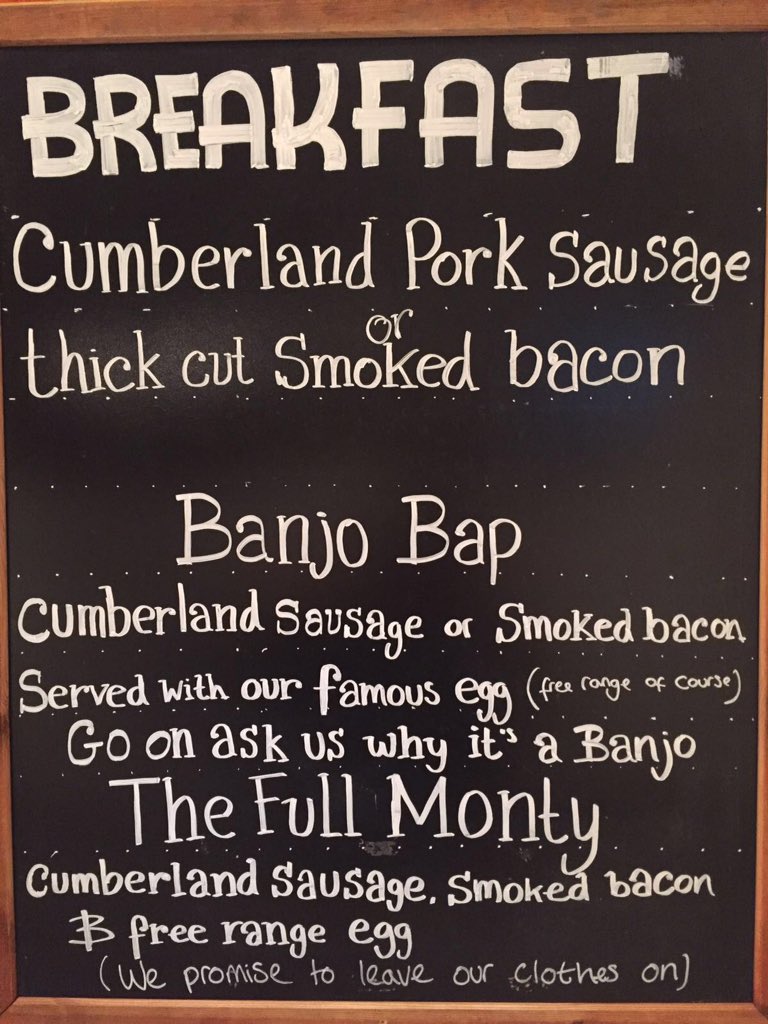 BREAKFAST
Cumberland Pork Sausage
or
thick cut Smoked bacon
Banjo Bap
Cumberland Sausage or Smoked bacon
Served with our famous egg (free range of course)
Go on ask us why it's a Banjo
The Full Monty
Cumberland Sausage, Smoked bacon
& free range egg
(We promise to leave our clothes on)